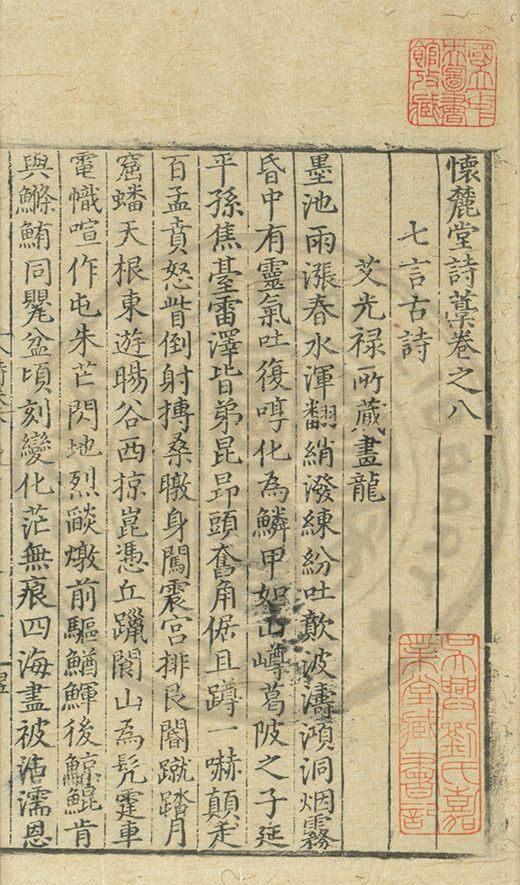 懷麓堂詩藁卷之八
七言古詩
艾光禄所藏畫龍
墨池雨漲春水渾翻綃潑練紛吐歕波濤澒洞烟霧
昏中有靈氣吐復啍化為鱗甲如山嶟葛陂之子延
平孫焦臺雷澤皆弟昆昂頭奮角倨且蹲一嚇顛走
百孟賁怒眥倒射搏桑暾身闖震宫排艮閽蹴踏月
窟蟠天根東遊暘谷西掠崑憑丘躐閬山為髠霆車
電幟喧作屯朱芒閃地烈燄燉前驅鰌鱓後鯨鯤肯
與鰷鮪同甖盆頃刻變化茫無痕四海盡被沾濡恩
國立中
央圖書
館攷藏
吴興劉氏嘉
業堂藏書記